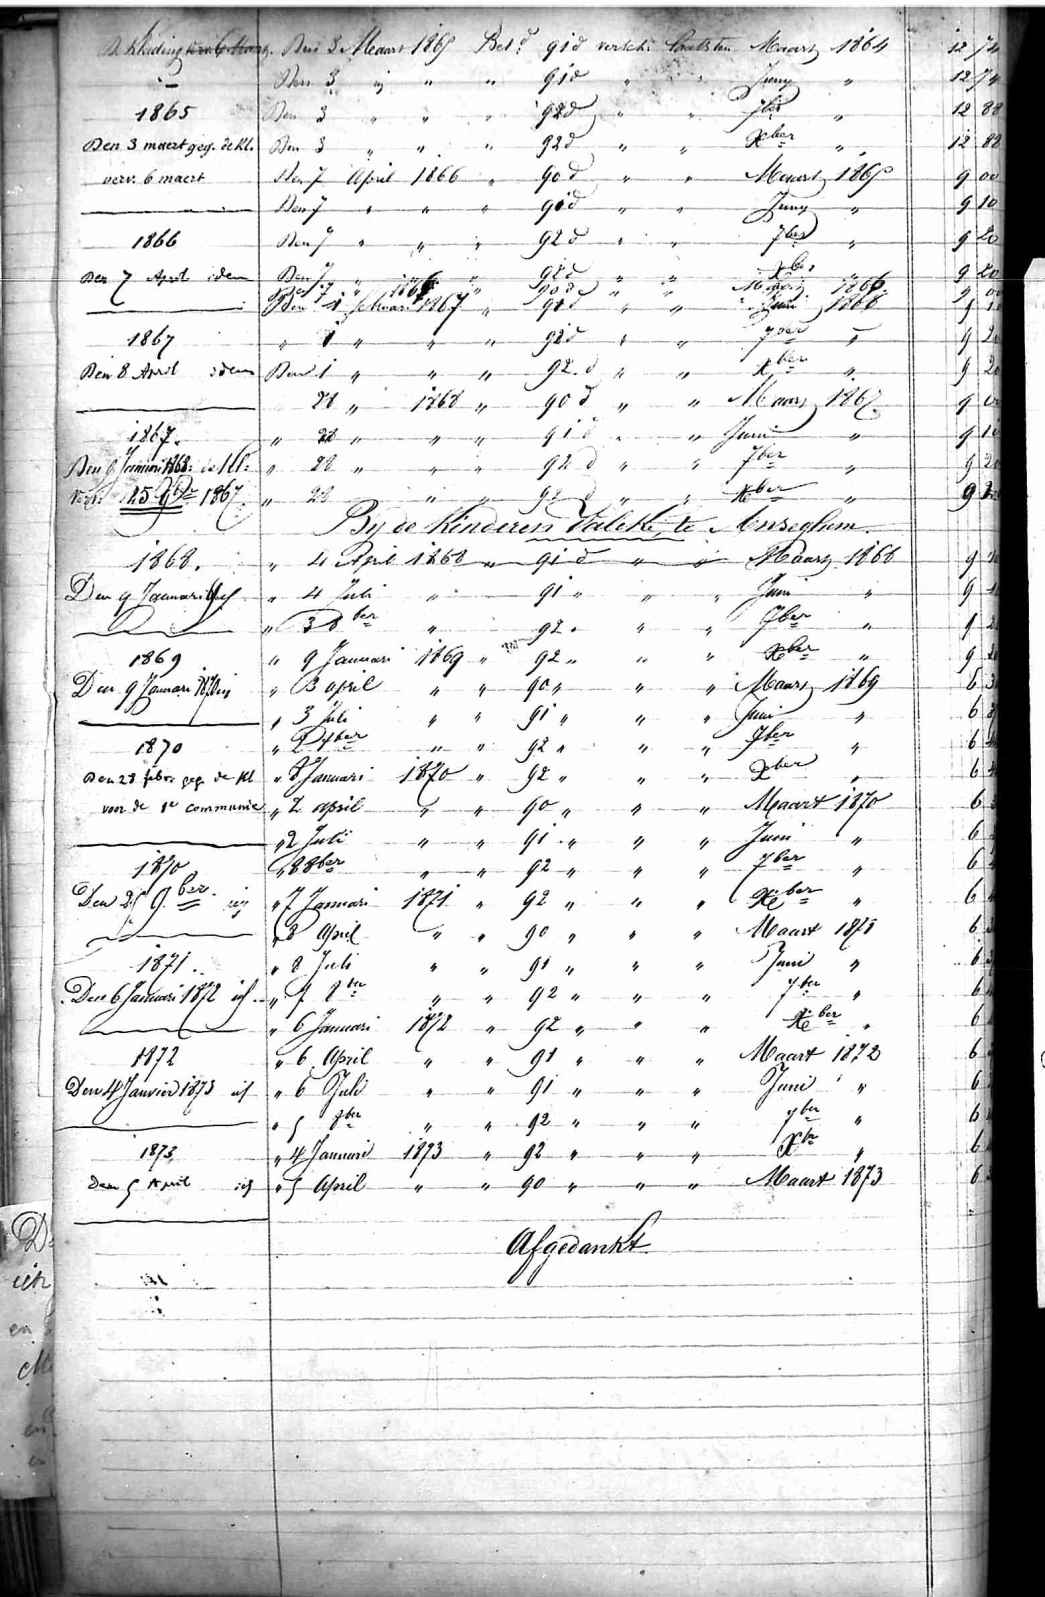 Den 3 Maart 1865 Bet.d 91 d versch. laatsten Maart 1864 12 74
Den 3 " " " 91 d " " Juny " 12 74
1865 Den 3 " " " 92 d " " 7ber " 12 88
Den 3 maert geg. de Kl. Den 3 " " " 92 d " " Xber " 12 88
verv. 6 maert Den 7 April 1866 " 90 d " " Maart 1865 9 00
Den 7 " " " 91 d " " Juny " 9 10
1866 Den 7 " " " 92 d " " 7ber " 9 20
Den 7 April idem Den 7 " " " 92 d " " Xber " 9 20
Den 7 " 1866 " 90 d " " Maart 1866
Den 1 februari 1867 " 91 d " " Juni 1866
1867 " 1 " " " 92 d " " 7ber " 9 20
Den 8 April idem Den 1 " " " 92 d " " Xber " 9 20
28 " 1868 " 90 d " " Maart 1867
1867. " 28 " " " 91 d " " Juni " 9 10
Den 9 Januari 1868 de Kl: " 28 " " " 92 d " " 7ber " 9 20
verv. 25 9ber 1867. " 28 " " " 92 d " " Xber " 9 20
By de Kinderen Valcke, te Anseghem.
1868. " 4 April 1868 " 91 d " " Maart 1868 9 10
Den 9 Januari " 4 Juli " 91 " " " Juni " 9
" 3 8ber " 92 " " " 7ber " 9
1869 " 9 Januari 1869 " 92 " " " Xber " 9 20
Den 9 Januari 1870 " 3 april " " 90 " " " Maart 1869 6
" 3 Juli " " 91 " " " Juni " 6
1870 " 2 " " 92 " " " 7ber " 6
Den 28 febr. geg. de Kl. " 8 Januari 1870 " 92 " " " Xber " 6
voor de 1e communie " 2 april " " 90 " " " Maart 1870 6
" 2 Juli " " 91 " " " Juni " 6
1870 " 8 8ber " " 92 " " " 7ber " 6
Den 25 9ber. " 7 Januari 1871 " 92 " " " Xber " 6
" 8 April " " 90 " " " Maart 1871 6
1871. " 8 Juli " " 91 " " " Juni " 6
Den 6 Januari 1872 " 7 8ber " " 92 " " " 7ber " 6
" 6 Januari 1872 " 92 " " " Xber " 6
1872 " 6 April " " 91 " " " Maart 1872 6
Den 4 Janvier 1873 " 6 Juli " " 91 " " " Juni " 6
" 5 8ber " " 92 " " " 7ber " 6
1873 " 4 Januari 1873 " 92 " " " Xber " 6
Den 5 April " 5 April " " 90 " " " Maart 1873 6
Afgedankt.